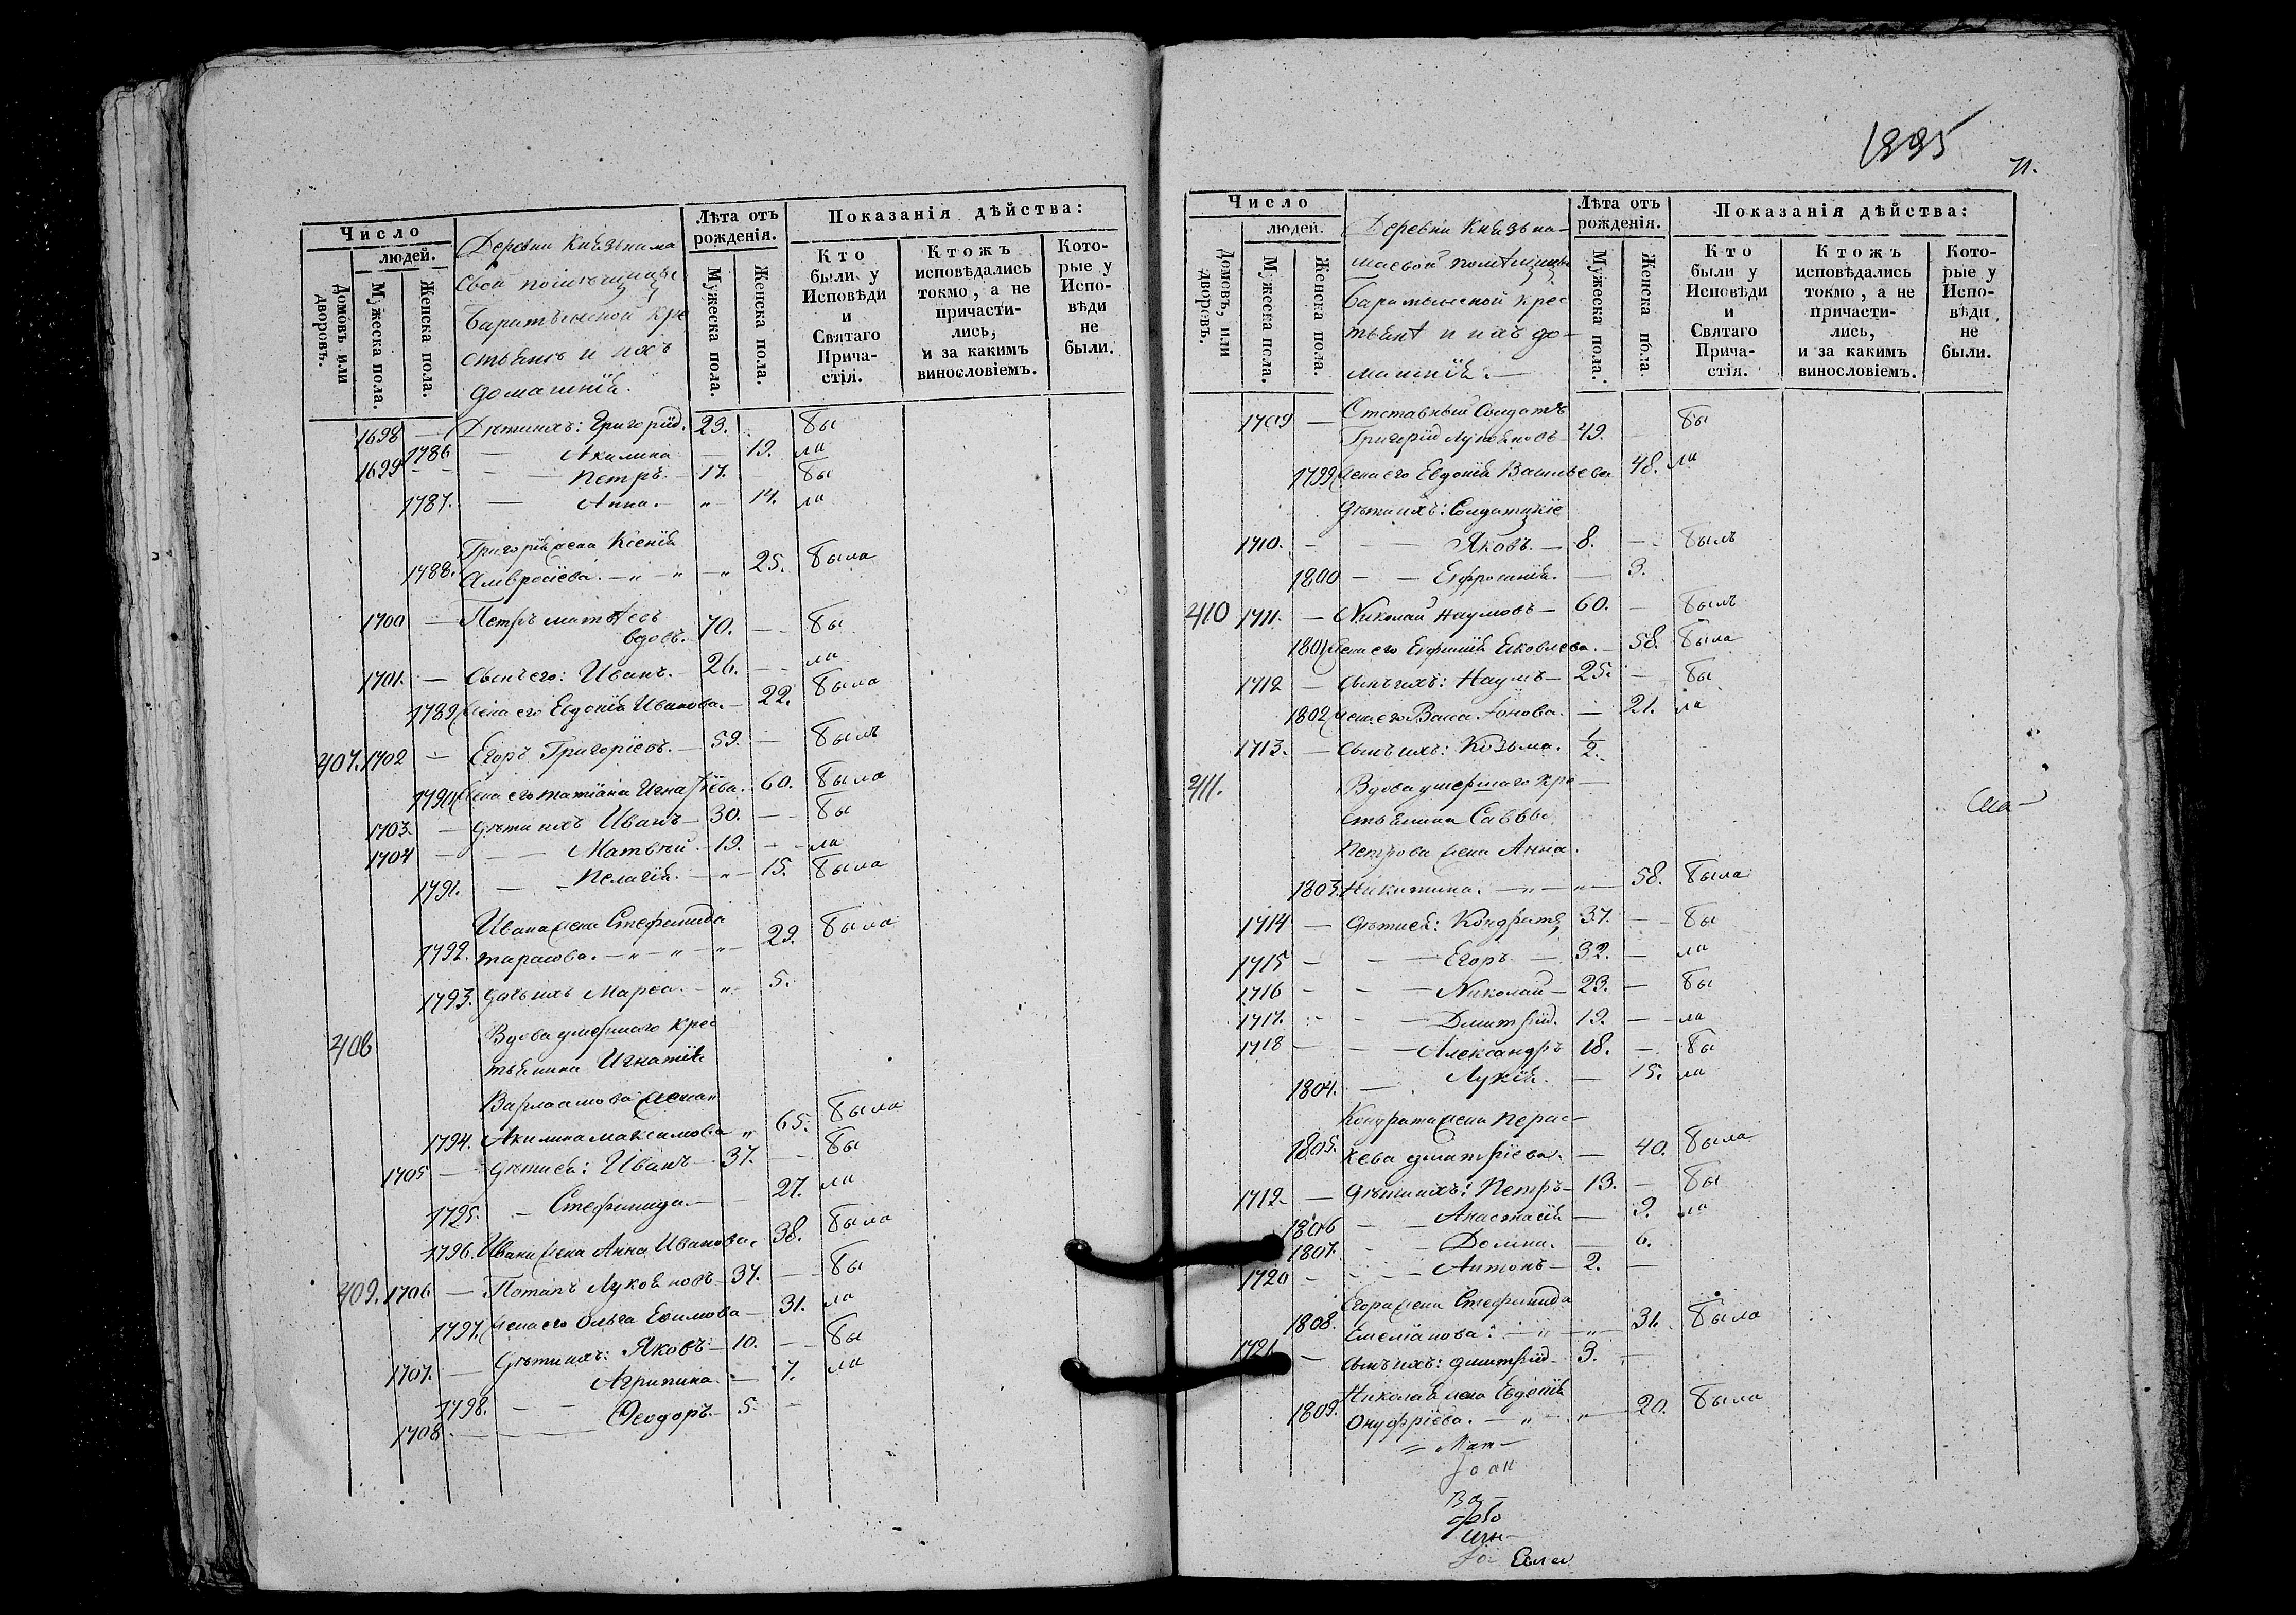 Число
людей.
Домовъ или дворовъ.
Мужеска пола.
Женска пола.
Деревни Князьнама
свой помѣщицы
Баратынской кре
стьянъ и ихъ
домашнія.
Лѣта отъ рожденія.
Мужеска пола.
Женска пола.
Показанія дѣйства:
Кто были у Исповѣди и Святаго Причастія.
Ктожъ исповѣдались токмо, а не причастились, и за какимъ винословіемъ.
Которые у Исповѣди не были.
1698 — Дѣти ихъ: Григорій. 23. бы
1786 — Акилина — 19. ла
1699 — Петръ. — 17. бы
1787. — Анна. — „ — 14. ла
Григорія жена Ксенія
1788. Амвросіева. — „ — „ — „ 25. была
1700 — Петръ Матѳеевъ
вдовъ. 70. — бы
1701. — Сынъ его: Иванъ. 26. — ла
1789 Жена его Евдокія Иванова. — 22. была
407. 1702 — Егоръ Григоріевъ. — 59. — былъ
1790 Жена его Татіана Игнатіева. 60. была
1703. — Дѣти ихъ Иванъ — 30. — бы
1704 — Матвѣй. — 19. — ла
1791. — Пелагія. — „ — 15. была
Ивана жена Стефанида
1792. Тарасова. — „ — „ — „ — 29. была
1793. Дочь ихъ Марѳа. — „ — 5.
408 Вдова умершаго крес
тьянина Игнатія
Варлаамова жена
1794. Акилина Максимова „ 65. была
1705 — Дѣти ея: Иванъ — 37. — бы
1795. — Стефанида — 27. ла
1796. Ивана жена Анна Иванова. 38. была
409. 1706 — Потапъ Лукояновъ — 37. — бы
1797. Жена его Ольга Ефимова — 31. ла
1707. — Дѣти ихъ: Яковъ — 10. — бы
1798. — Агрипина. — 7. ла
1708 — Ѳеодоръ. — 5. —
1995
71.
Число
людей.
Домовъ, или дворовъ.
Мужеска пола.
Женска пола.
Деревни Князьна-
маевой помѣщицы
Баратынской крес
тьянѣ и ихъ до-
машнія. —
Лѣта отъ рожденія.
Мужеска пола.
Женска пола.
Показанія дѣйства:
Кто были у Исповѣди и Святаго Причастія.
Ктожъ исповѣдались токмо, а не причастились, и за какимъ винословіемъ.
Которые у Исповѣди не были.
1709 — Отставный Солдатъ
Григорій Лукояновъ — 49. — бы
1799 Жена его Евдокія Васильева 48. ла
Дѣти ихъ: Солдатскіе
1710. — Яковъ. — 8. — былъ
1800 — Ефросинія. — 3.
410 1711. — Николай Наумовъ — 60. — былъ
1801 Жена его Ефимія Яковлева. — 58. была
1712 — Сынъ ихъ: Наумъ — 25. — бы
1802 Жена его Васса Іонова. — 21. ла
1713. — Сынъ ихъ: Козьма. 1/2.
411. Вдова умершаго кре —
стьянина Саввы
Петрова жена Анна.
1803. Никитина. — „ — „ — 58. была
1714 — Дѣти ея: Кондратъ 37. — бы
1715 — Егоръ — 32. — ла
1716 — Николай — 23. — бы
1717. — Дмитрій. 19. — ла
1718 — Александръ 18. — бы
1804. — Лукія. — 15. ла
Кондрата жена Парас-
1805. кева Дмитріева. — 40. была
1719. — Дѣти ихъ: Петръ — 13. — бы
1806 — Анастасія — 9. ла
1807. — Домна. — 6.
1720 — Антонъ — 2. —
Егора жена Стефанида
1808. Емеліанова. — „ — „ — 31. была
1721 — Сынъ ихъ: Дмитрій — 3. —
Николая жена Евдокія
1809. Онуфріева. — „ — „ — 20. была
= Мат —
Іоан